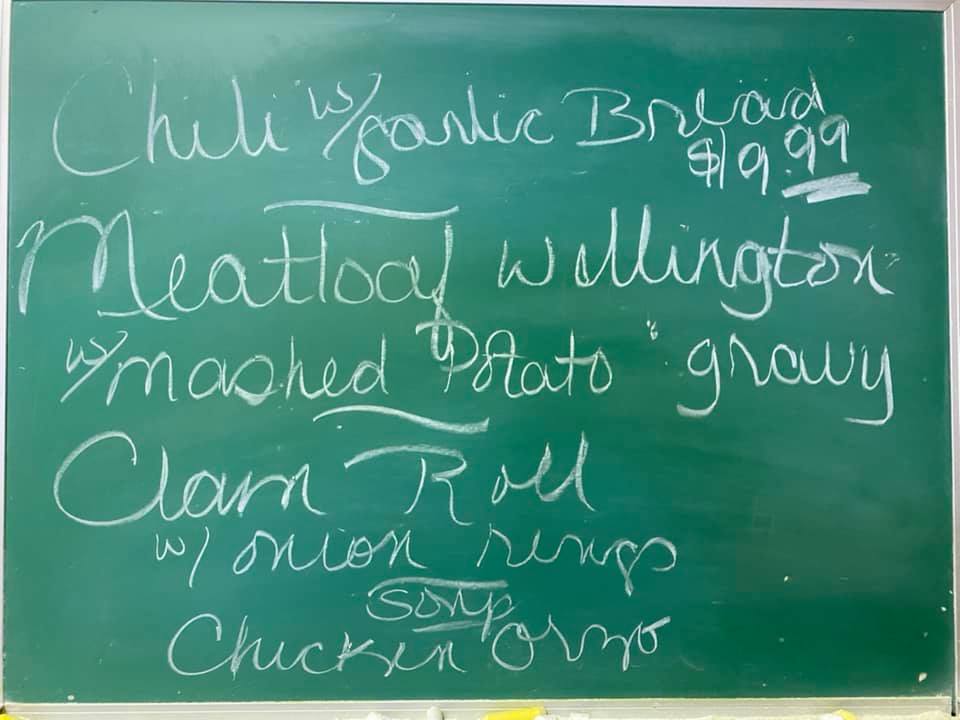 Chili w/ garlic Bread
$19.99
Meatloaf Wellington
w/ mashed Potato gravy
Clam Roll
w/ onion rings
Soup
Chicken Orzo